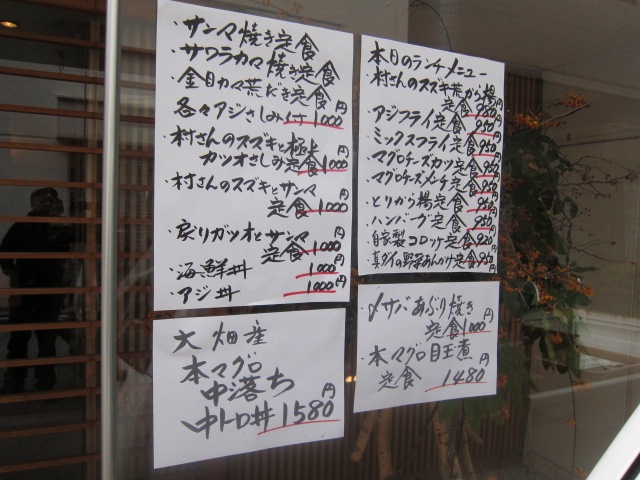 ・サンマ焼き定食
・サワラカマ焼き定食
・金目カマ荒だき定食
各々アジさしみ付1000円
・村さんのスズキと極上
カツオさしみ定食1000円
・村さんのスズキとサンマ
定食1000円
・戻リガツオとサンマ
定食1000円
・海鮮丼 1000円
・アジ丼 1000円
大畑産
本マグロ
中落ち
中トロ丼1580円
本日のランチメニュー
・村さんのスズキ荒から揚
定食980円
・アジフライ定食950円
・ミックスフライ定食950円
・マグロチーズカツ定食950円
・マグロチーズメンチ定食950円
・とりから揚定食950円
・ハンバーグ定食950円
・自家製コロッケ定食920円
・真ダイの野菜あんかけ定食950円
・〆サバあぶり焼き
定食1000円
・本マグロ目玉煮
定食 1480円